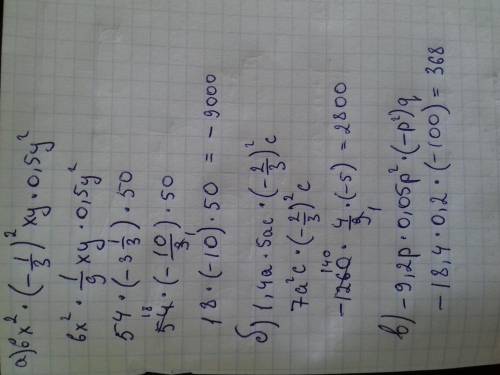 а) 6x² · (-1/3)² xy · 0,5y²
6x² · 1/9 xy · 0,5y²
54 · (-3 1/3) · 50
18
54 · (-10/3) · 50
1
18 · (-10) · 50 = - 9000
б) 1,4a · 5ac · (-2/3)² c
7a²c · (-2/3)² c
140
-1260 · 4/9 · (-5) = 2800
1
в) -9,2p · 0,05p² · (-p²)q
-18,4 · 0,2 · (-100) = 368